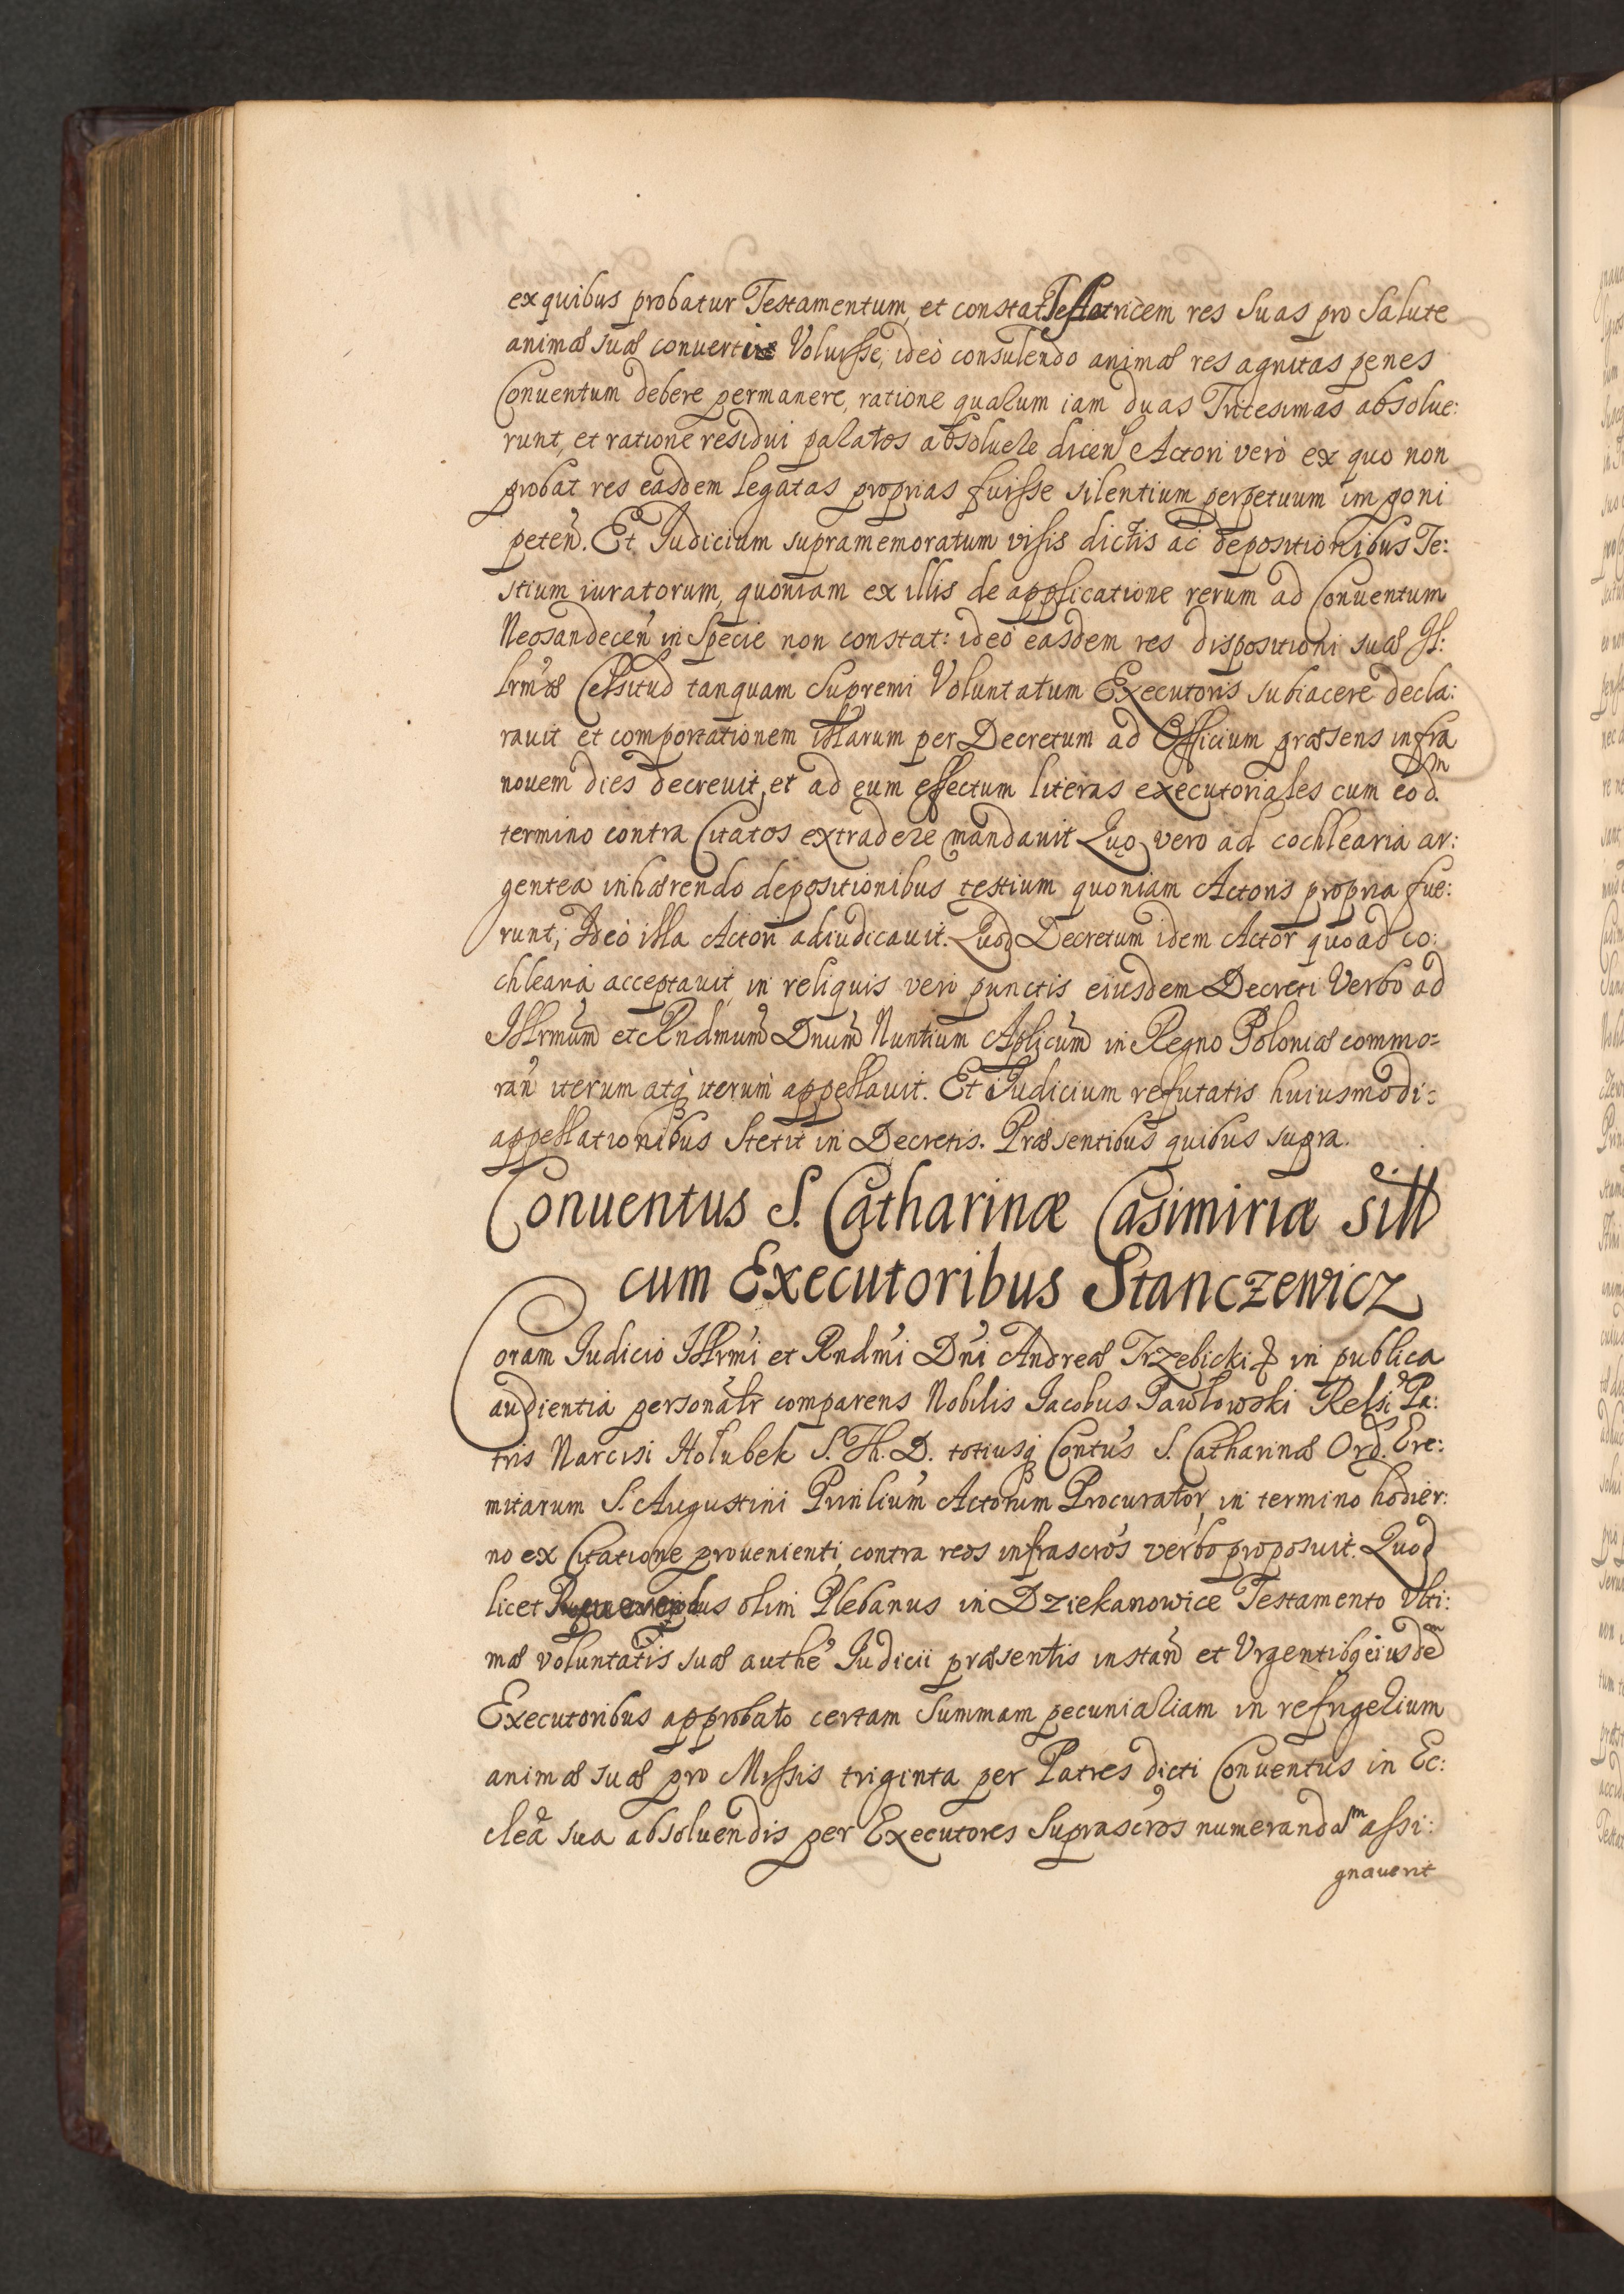 ex quibus probatur Testamentum, et constat Testatricem res Suas pro Salute
animæ suæ conuertire Voluisse, ideò consulendo animæ res agnitas penes
Conuentum debere permanere, ratione qualum iam duas Tricesimas absolue:
runt, et ratione residui paratos absoluere dicen Actori verò ex quo non
probat res easdem legatas proprias fuisse silentium perpetuum imponi
peten. Et Judicium supramemoratum visis dictis ac depositionibus Te:
stium iuratorum, quoniam ex illis de applicatione rerum ad Conuentum
Neosandecen in Specie non constat: ideò easdem res dispositioni suæ Jl:
lrmæ Celsitud tanquam Supremi Voluntatum Executoris subiacere decla:
rauit et comportationem illarum per Decretum ad Officium præsens infra
nouem dies decreuit, et ad eum effectum literas executoriales cum eod.m
termino contra Citatos extradere mandauit Quo vero ad cochlearia ar:
gentea inhærendo depositionibus testium quoniam Actoris propria fue:
runt, Ideò illa Actori adiudicauit. Quod Decretum idem Actor quoad co:
chlearia acceptauit in reliquis verò punctis eiusdem Decreti Verbo ad
Jllrmum et Rndmum Dnum Nuntium Aplicum in Regno Poloniæ commo=
ran iterum atq iterum appellauit. Et Judicium refutatis huiusmodi=
appellationibus Stetit in Decretis. Præsentibus quibus supra.
Conuentus S. Catharinæ Casimiriæ sitt
cum Executoribus Stanczewicz
Coram Judicio Jllrmi et Rndmi Dni Andreæ Trzebicki & in publica
audientia personalr comparens Nobilis Jacobus Pawłowski Relsi Pa:
tris Narcisi Hołubek S. Th. D. totiusq Contus S. Catharinæ Ord. Ere:
mitarum S. Augustini Prinlium Actorum Procurator, in termino hodier:
no ex Citatione prouenienti contra reos infrascros verbo proposuit. Quod
licet olim Plebanus in Dziekanowice Testamento Vlti:
mæ voluntatis suæ authe Judicii præsentis instan et Vrgentibq eiusdem
Executoribus approbato certam Summam pecuniariam in refrigerium
animæ suæ pro Missis triginta per Patres dicti Conuentus in Ec:
clea sua absoluendis per Executores Suprascros numerandam assi:
gnauerit